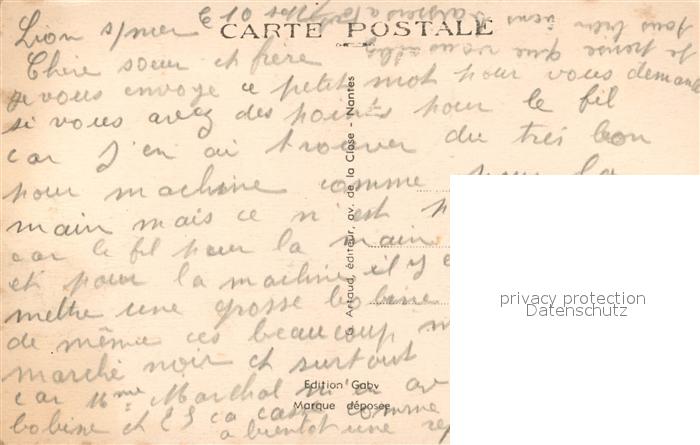 CARTE POSTALE
Lion s/mer
Chère soeur et frère
je vous envoye ce petit mot pour vous demande
si vous avez des points pour le fil
car J'en ai trouver du très bon
pour machine comme pour la
main mais ce n'est
car le fil pour la main
et pour la machine il y
mettre une grosse bobine
de même ces beaucoup
marché noir et surtout
car Mme Marchal m'en
bobine et comme
a bientôt une
je pense que vous
bien
G. Artaud, éditeur, av. de la Close - Nantes
Edition Gaby
Marque déposée
privacy protection
Datenschutz